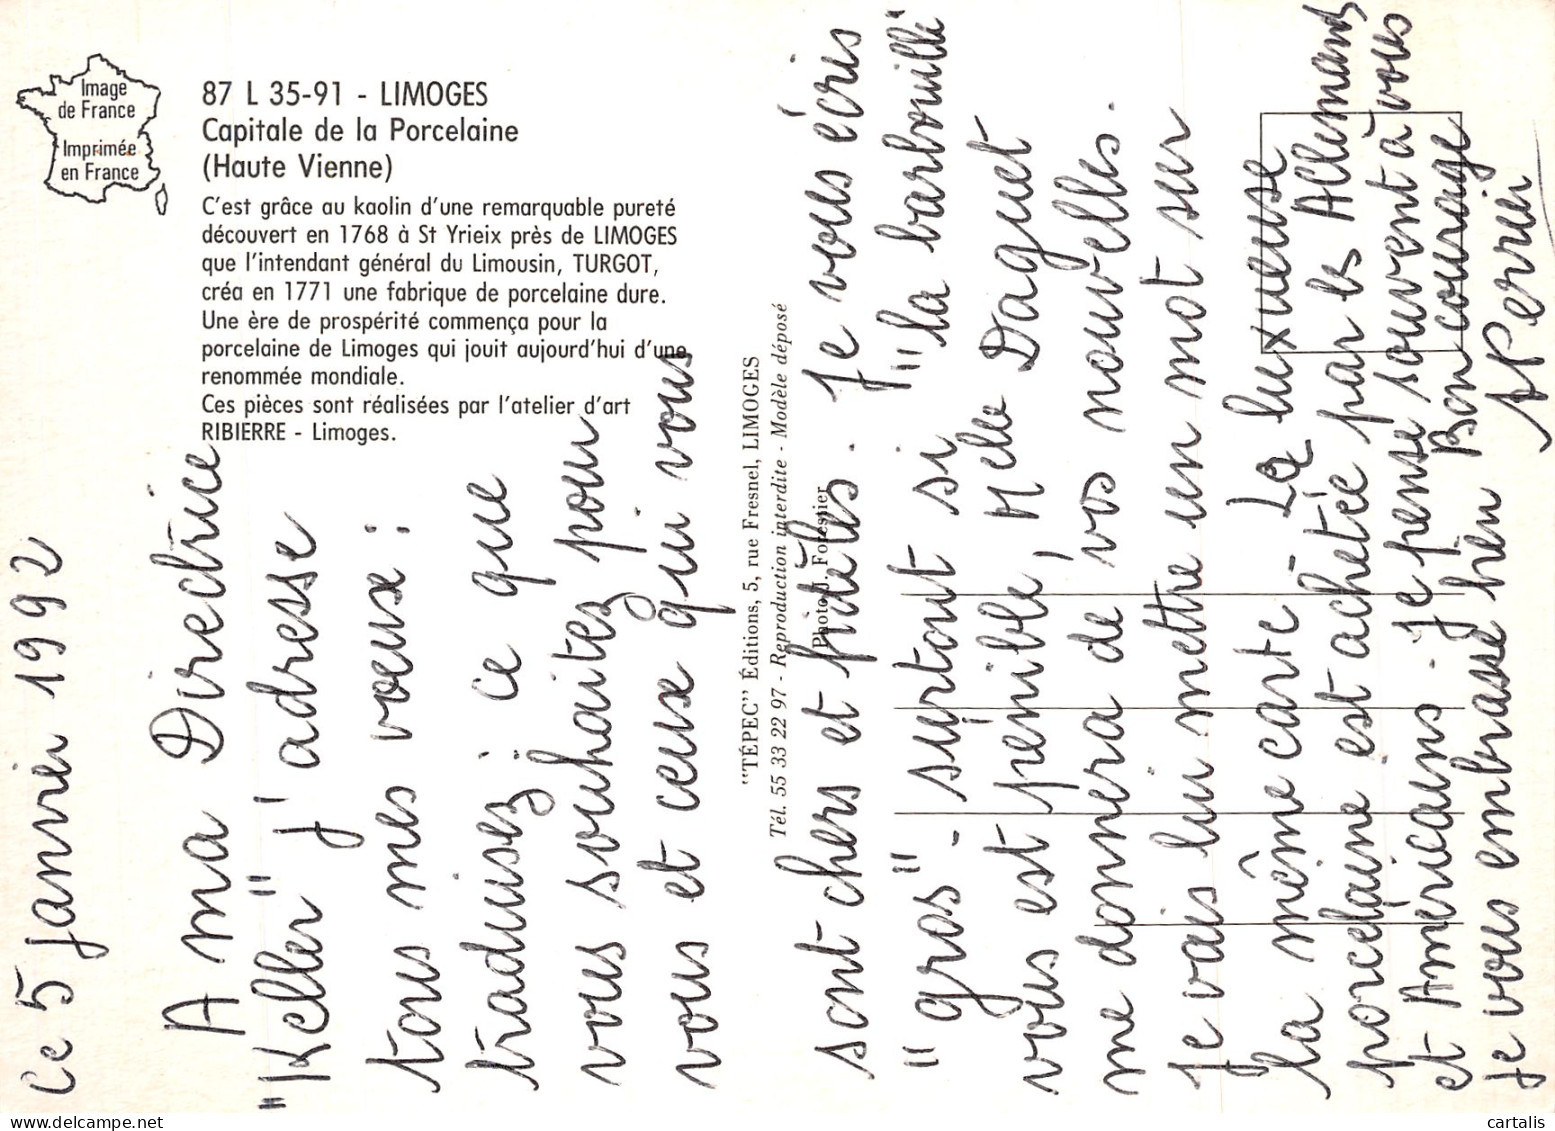 Image
de France
Imprimée
en France
87 L 35-91 - LIMOGES
Capitale de la Porcelaine
(Haute Vienne)
C'est grâce au kaolin d'une remarquable pureté
découvert en 1768 à St Yrieix près de LIMOGES
que l'intendant général du Limousin, TURGOT,
créa en 1771 une fabrique de porcelaine dure.
Une ère de prospérité commença pour la
porcelaine de Limoges qui jouit aujourd'hui d'une
renommée mondiale.
Ces pièces sont réalisées par l'atelier d'art
RIBIERRE - Limoges.
"TÉPEC" Éditions, 5, rue Fresnel, LIMOGES
Tél. 55 33 22 97 - Reproduction interdite - Modèle déposé
Photo J. Forestier
Ce 5 janvier 1992
A ma Directrice
"Keller" j'adresse
tous mes voeux :
traduisez : ce que
vous souhaitez pour
vous et ceux qui vous
sont chers et fidèles. Je vous écris
"gros" - surtout si "la barbouille"
vous est pénible, Melle Daguet
me donnera de vos nouvelles.
Je vais lui mettre un mot sur
la même carte - La luxueuse
porcelaine est achetée par les Allemands
et Américains - Je pense souvent à vous
Je vous embrasse bien Bon courage
A Perrier
cartalis